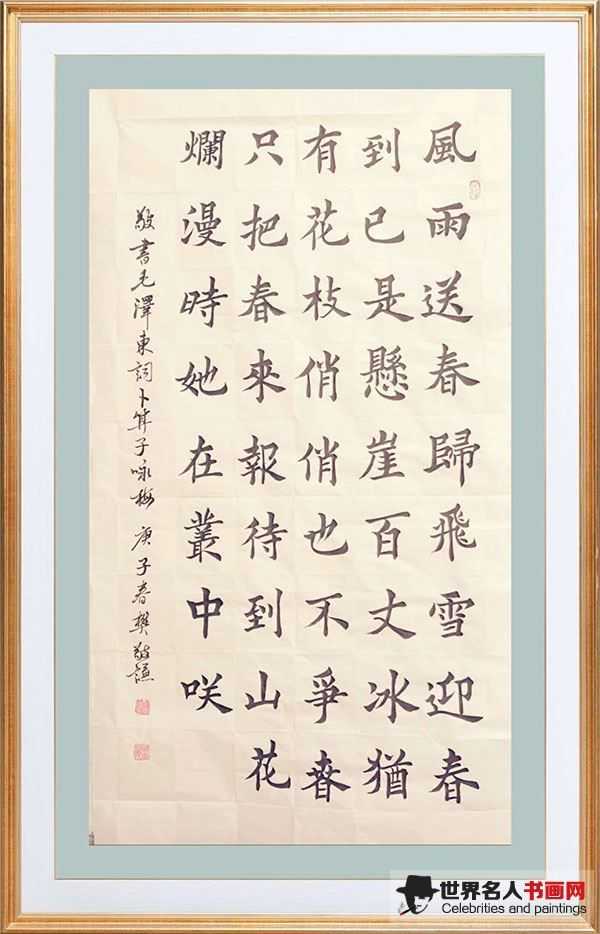 風雨送春歸飛雪迎春
到已是懸崖百丈冰猶
有花枝俏俏也不爭春
只把春來報待到山花
爛漫時她在叢中咲
敬書毛澤東詞卜算子咏梅 庚子春樊敬謙
世界名人书画网
Celebrities and paintings